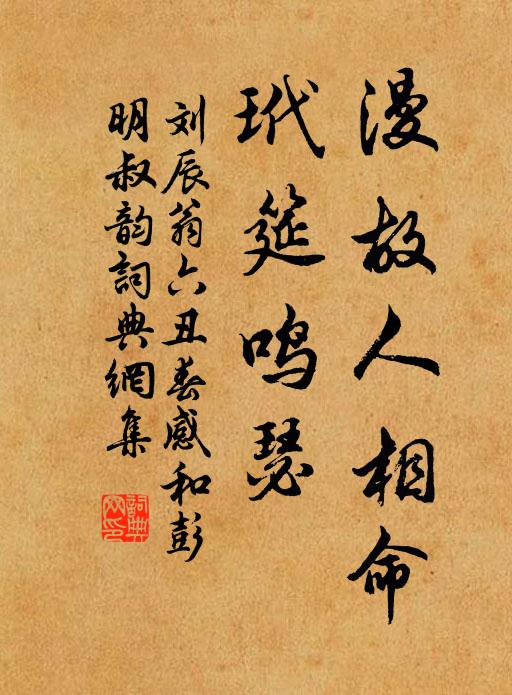 漫故人相命
玳筵鸣瑟
刘辰翁六丑春感和彭
明叔韵詞典網集
詞典網印